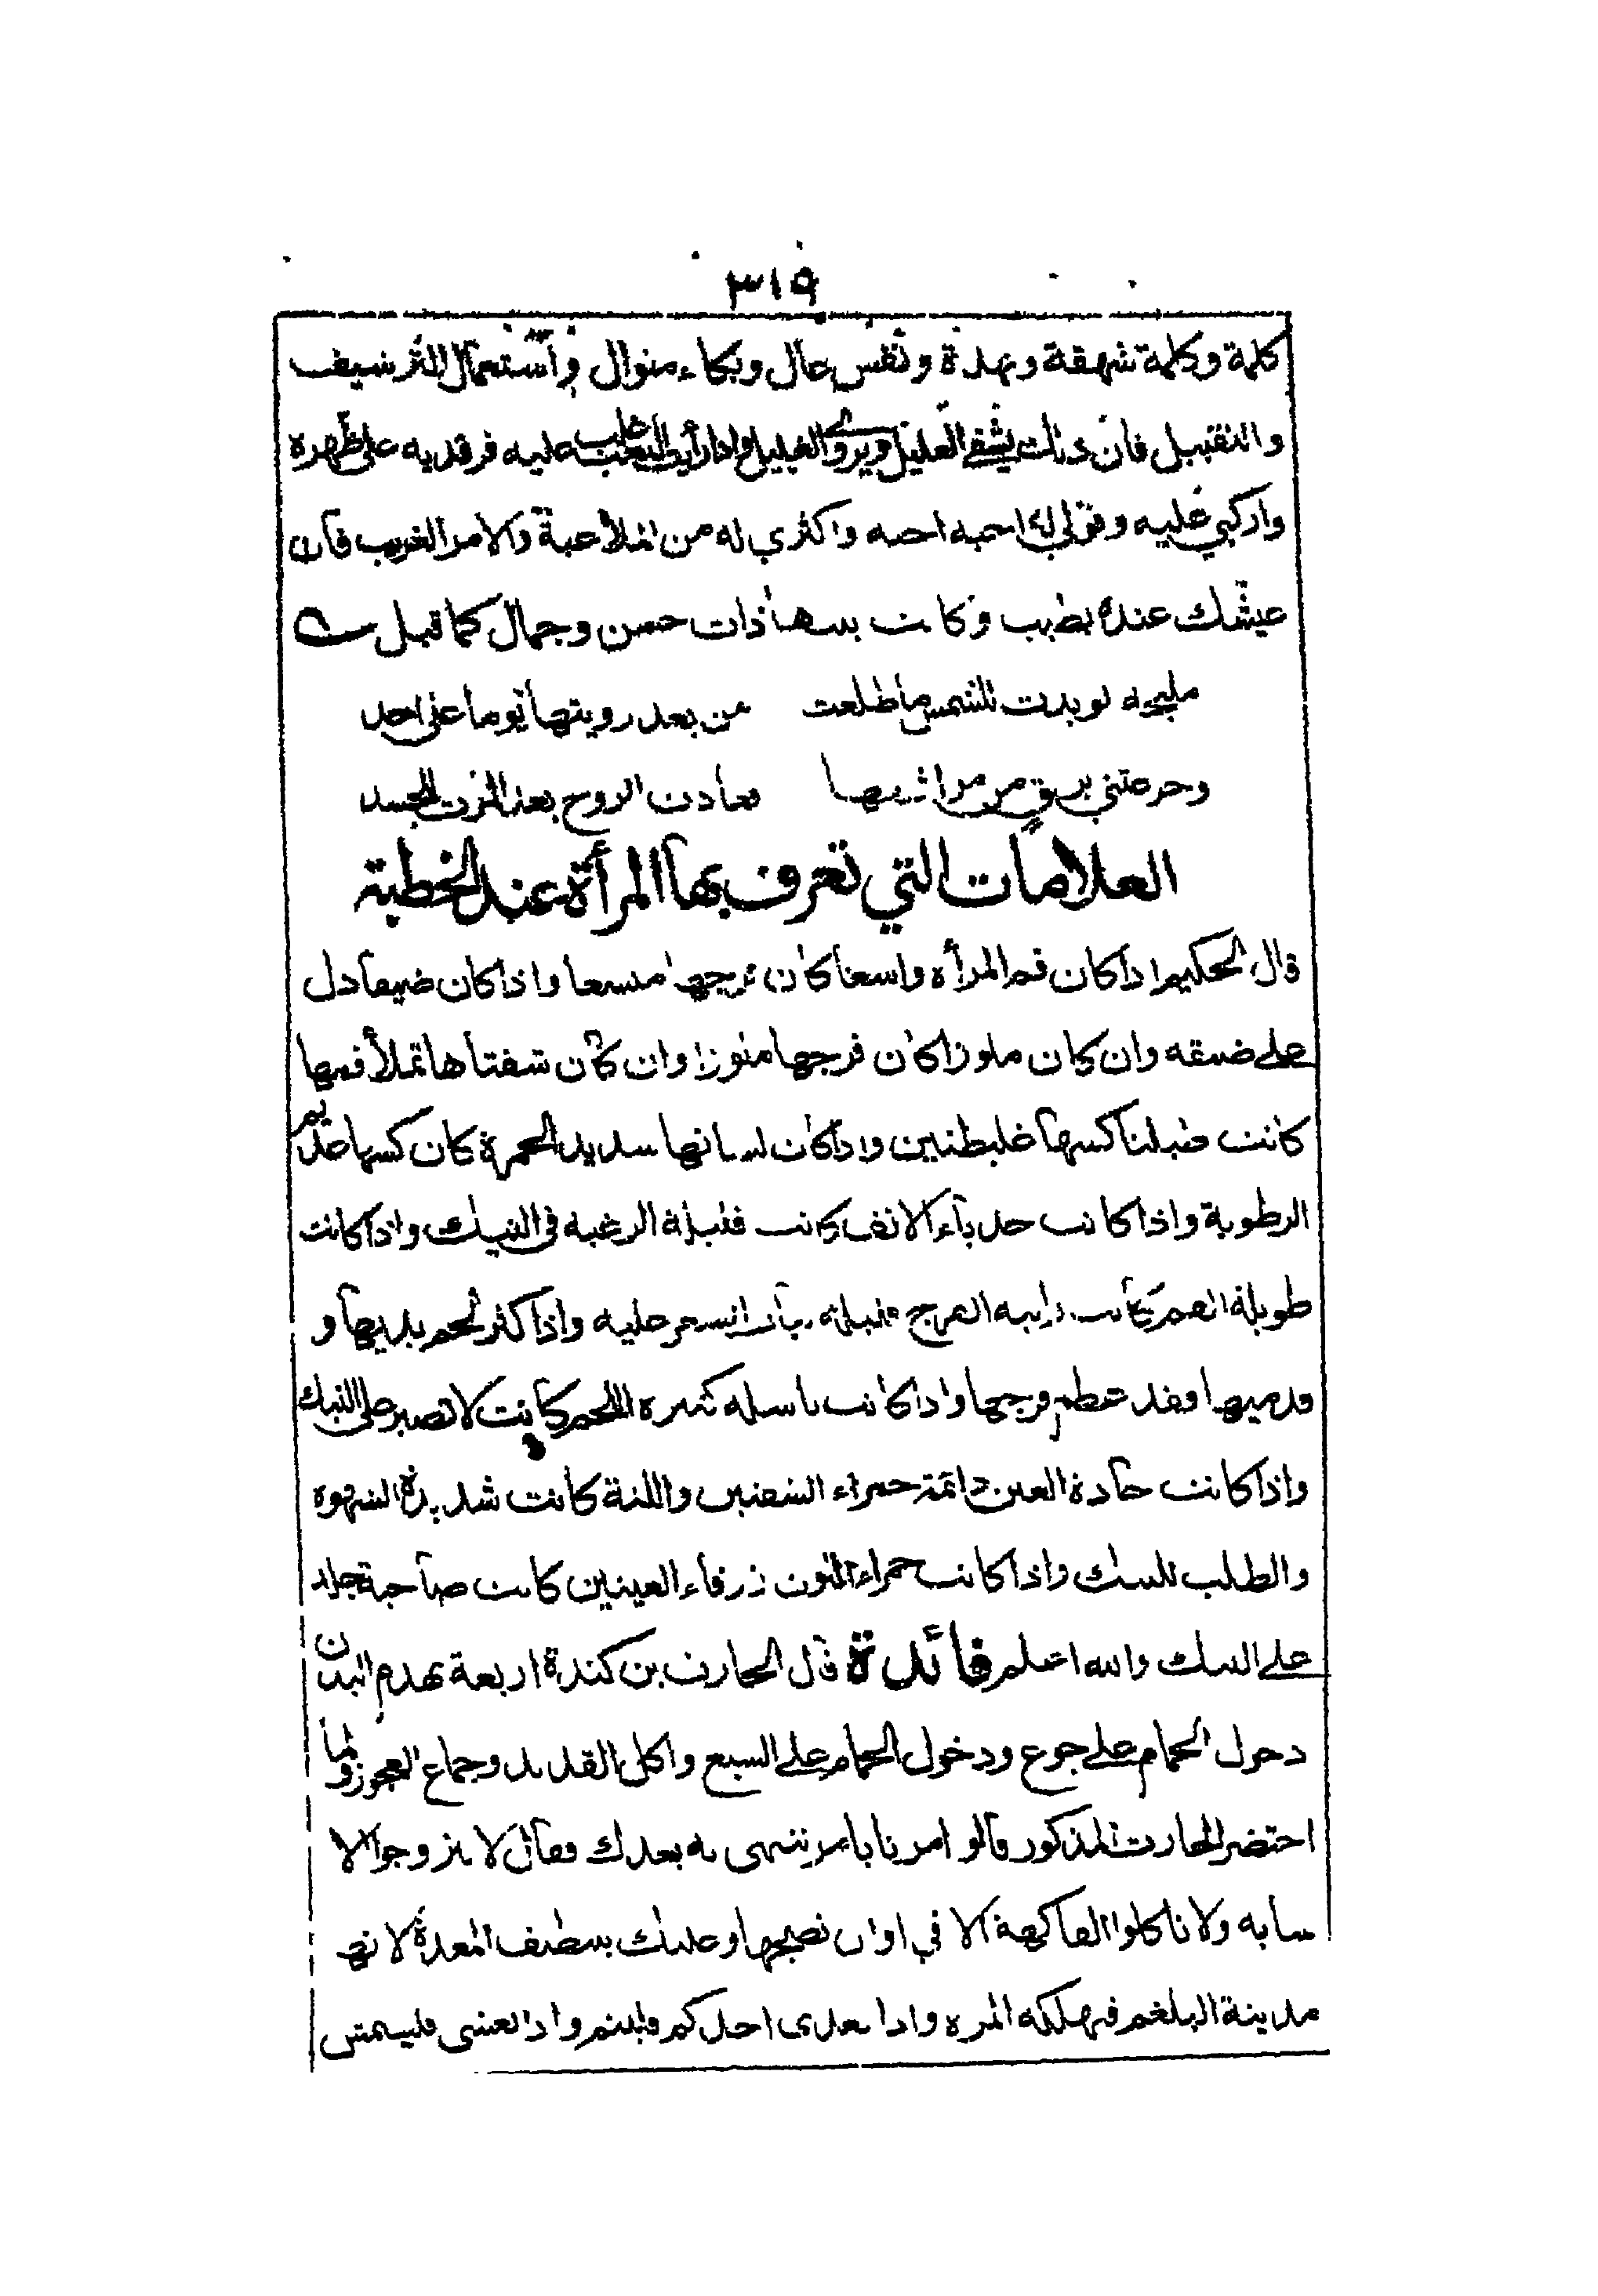 ٣١٩
كلمة وكلمة شهقة ونهدة ونفس عال وبكاء متوال واستعمال الترشيف
والتقبيل فان ذلك يشفي العليل ويروي الغليل واذا رأيت التعب غلب عليه فرقديه على ظهره
واركبي عليه وقولي له احبه احبه واكثري له من الملاعبة والامر الغريب فان
عيشك عنده يطيب وكانت بنتها ذات حسن وجمال كما قيل
مليحه لو بدت للشمس ما طلعت من بعد رويتها يوما على احد
وجرعتني بريق من مراشفها فعادت الروح بعد الموت للجسد
العلامات التي تعرف بها المرأة عند الخطبة
قال الحكيم اذا كان فم المرأه واسعا كان فرجها متسعا واذا كان ضيقا دل
على ضيقه وان كان ملوزا كان فرجها ملوزا وان كان شفتاها تملأ فمها
كانت كسها غليظتين واذا كان لسانها شديد الحمرة كان كسها عديم
الرطوبة واذا كانت حدباء الانف كانت قليلة الرغبه في النيك واذا كانت
طويلة الفم كانت رابيه الفرج قليلة نبات الشعر عليه واذا كثر لحم يديها و
قدميها فقد عظم فرجها واذا كانت كثيره اللحم كانت لا تصبر على النيك
واذا كانت حادة العين حمراء الشفتين واللثة كانت شديدة الشهوة
والطلب للنيك واذا كانت حمراء اللون زرقاء العينين كانت صاحبة جلد
على النيك والله اعلم فائدة قال الحارث بن كندة اربعة تهدم البدن
دخول الحمام على جوع ودخول الحمام على الشبع واكل القديد وجماع العجوز ولما
احتضر الحارث المذكور قالوا امرنا بامر ننتهى به بعدك فقال لا تزوجوا الا
شابه ولا تاكلوا الفاكهة الا في اوان نضجها وعليك بتنظيف المعدة لانها
مدينة البلغم مهلكه المره واذا تغدى احدكم فلينم واذا تعشى فليمش